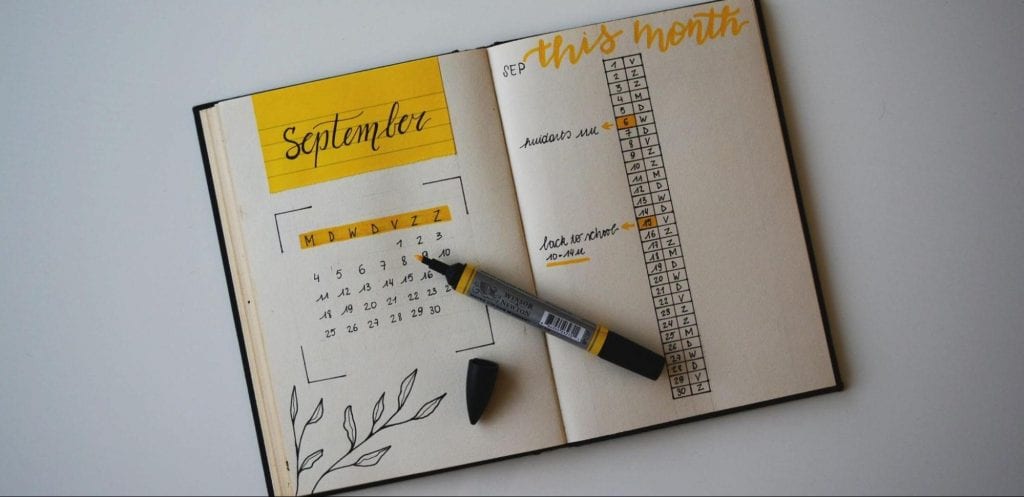 September
M D W D V Z Z
1 2 3
4 5 6 7 8 9 10
11 12 13 14 15 16
18 19 20 21 22 23
25 26 27 28 29 30
WINSOR
NEWTON
this month
SEP
1 V
2 Z
3 Z
4 M
5 D
6 W
huidarts
7 D
8 V
9 Z
10 Z
11 M
12 D
13 W
14 D
15 V
back to school
10-14u
16 Z
17 Z
18 M
19 D
20 W
21 D
22 V
23 Z
24 Z
25 M
26 D
27 W
28 D
29 V
30 Z